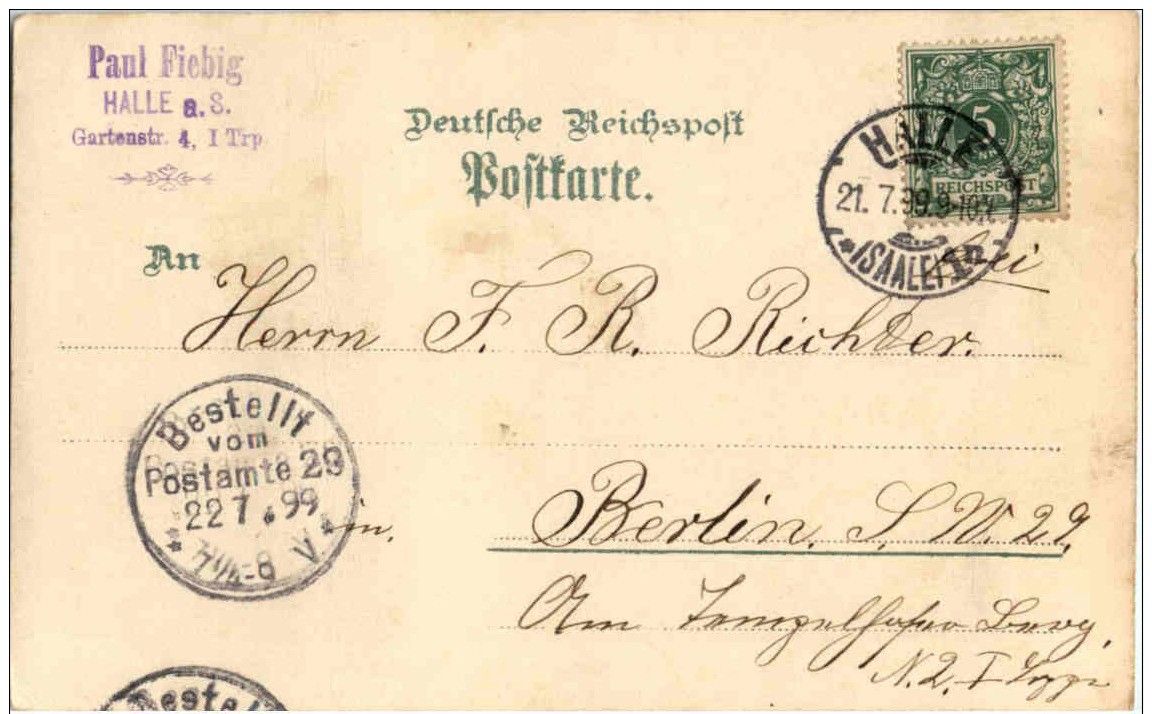 Paul Fiebig
HALLE a. S.
Gartenstr. 4, I Trp
Deutsche Reichspost
Postkarte.
5
REICHSPOST
HALLE
21. 7. 99. 9-10V.
*(SAALE)
An
Herrn F. R. Richter.
Bestellt
vom
Postamte 29
22 7. 99
7¼-8 V
in.
Berlin. S. W. 29.
Am Tempelhofer Berg,
N. 2. I
Bestellt